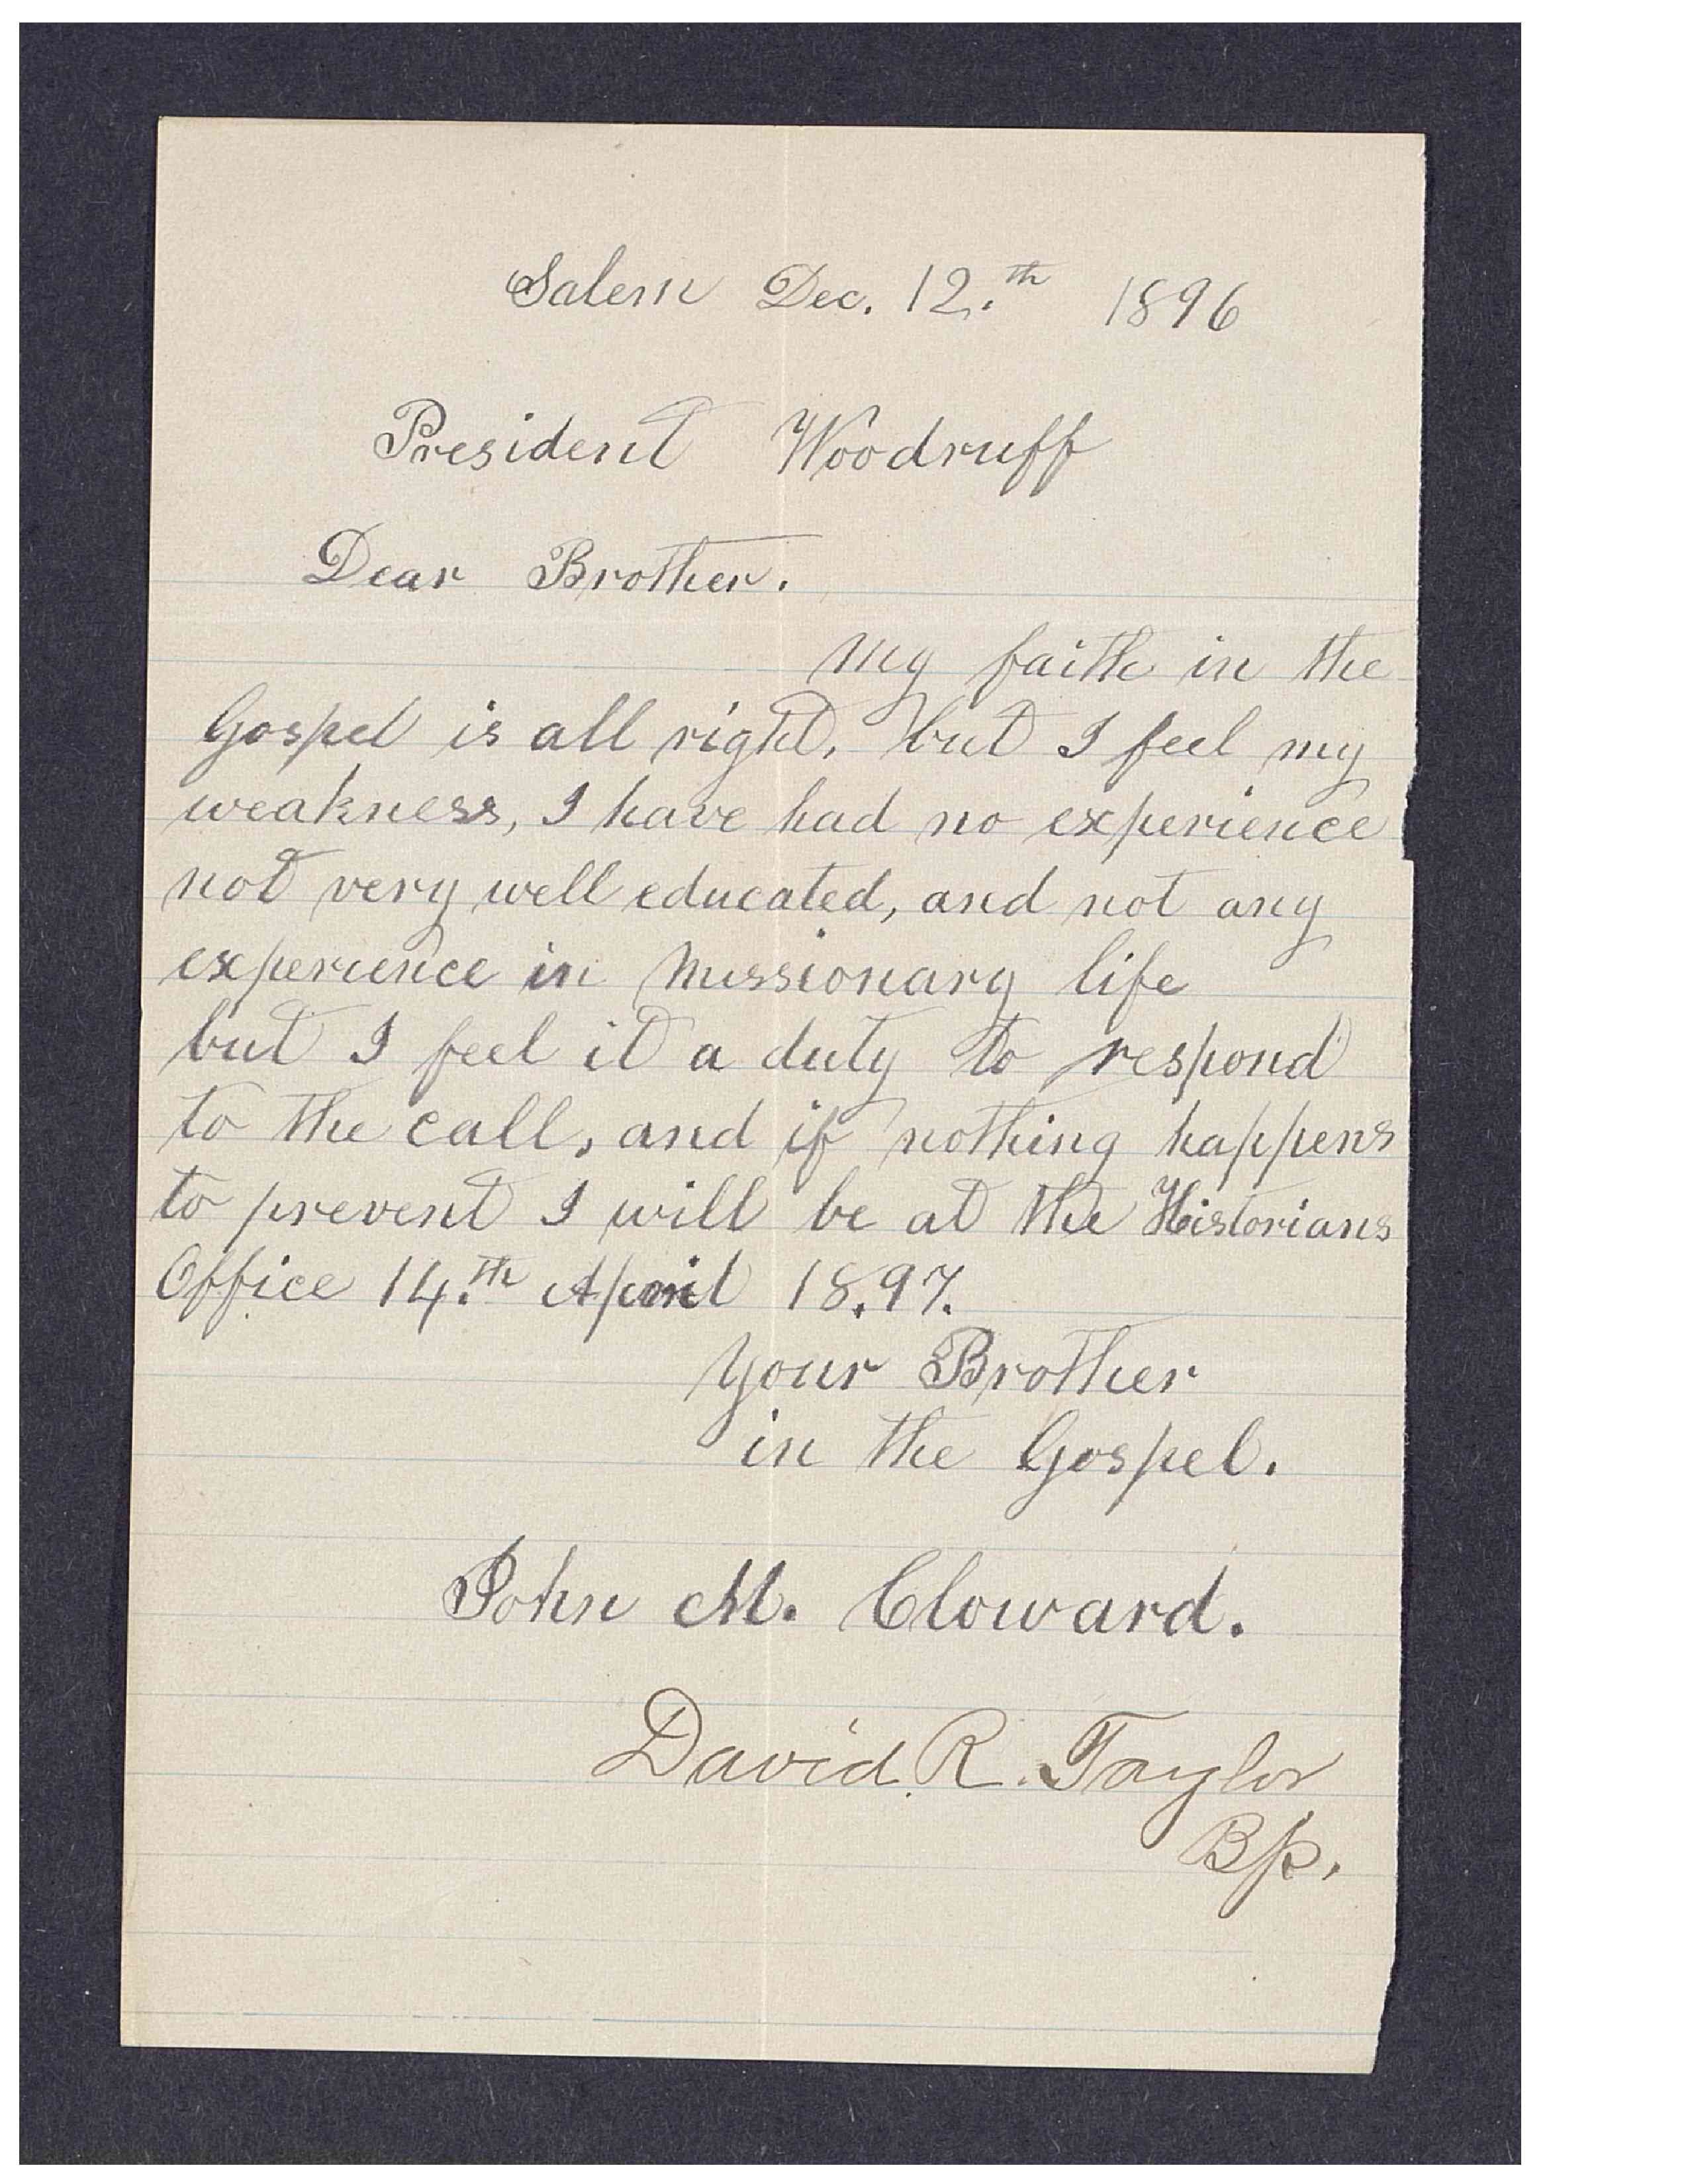 Salem Dec. 12.th 1896
President Woodruff
Dear Brother.
My faith in the
Gospel is all right, but I feel my
weakness, I have had no experience
not very well educated, and not any
experience in Missionary life
but I feel it a duty to respond
to the call, and if nothing happens
to prevent I will be at the Historians
Office 14.th April 18.97.
Your Brother
in the Gospel.
John M. Cloward.
David. R. Taylor
Bp.